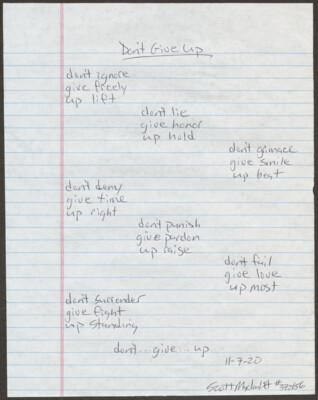 Don't Give Up
don't ignore
give freely
up lift
don't lie
give honor
up hold
don't grimace
give smile
up beat
don't deny
give time
up right
don't punish
give pardon
up raise
don't fail
give love
up most
don't surrender
give fight
up standing
don't... give... up
11-7-20
Scott